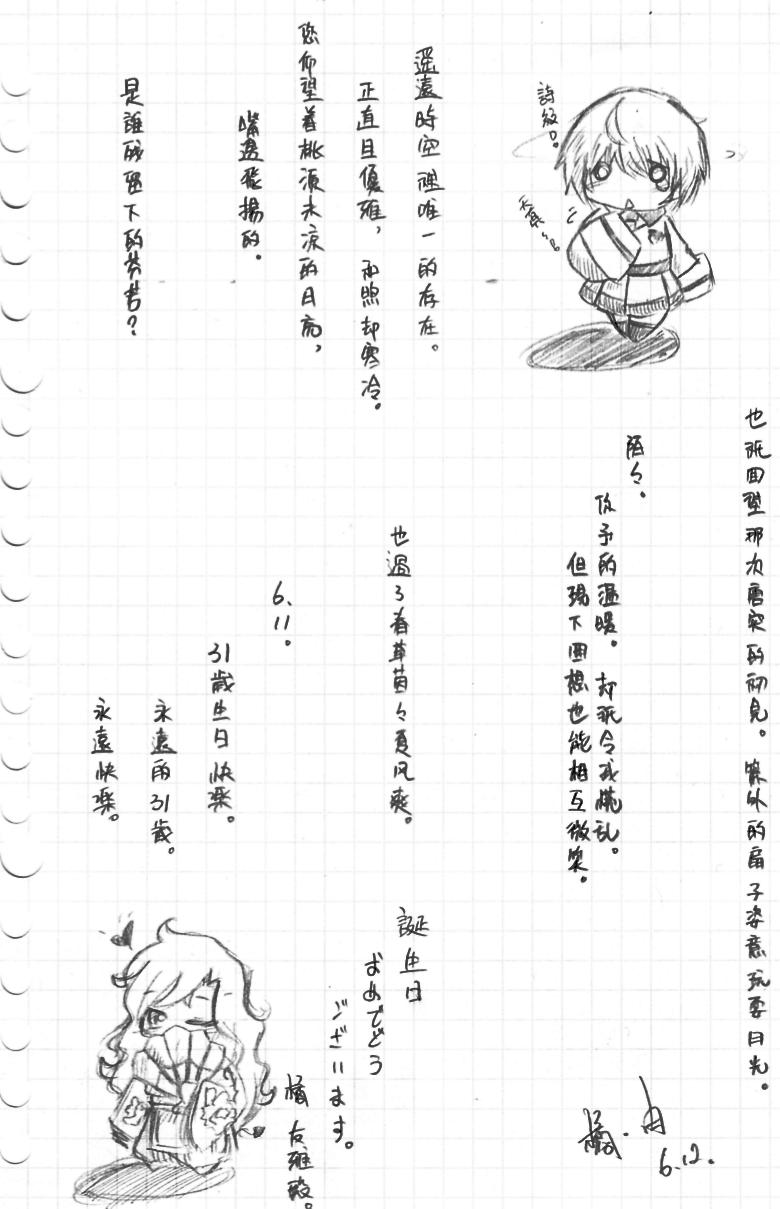 詩紋。
天真
遥遠時空裡唯一的存在。
正直且優雅，和煦却寒冷。
您仰望着桃源未凉的月亮，
嘴邊飛揚的。
是誰殘留下的芬芳？
也祇回望那次唐突的初見。 的扇子姿意玩耍日光。
陌々。
你予的温暖。却祇令我慌乱。
但陽下回想也能相互微笑。
也過了春草茵々夏风爽。
6.11。
31歲生日快楽。
永遠的31歲。
永遠快楽。
誕生日
おめでどう
ございます。
橘 友雅殿。
橘・月
6.12.